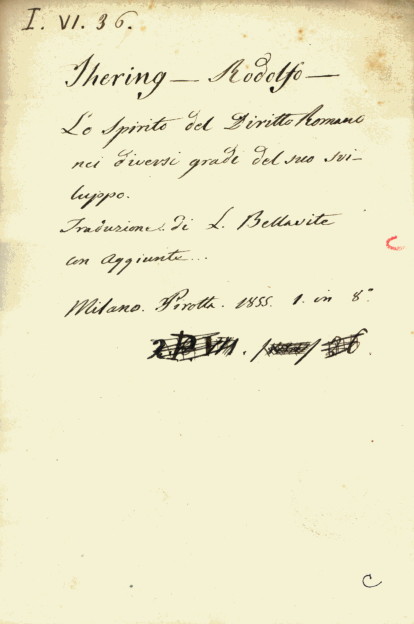 I. VI. 36.
Jhering — Rodolfo —
Lo Spirito del Diritto Romano
nei diversi gradi del suo svi-
luppo.
Traduzione di L. Bellavite
con aggiunte...
Milano. Pirotta. 1855. 1. in 8°
C
C